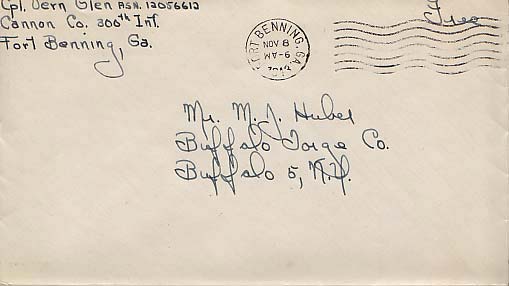 Cpl. Vern Glen ASN. 12056612
Cannon Co. 300th Inf.
Fort Benning, Ga.
Free
FORT BENNING, GA.
NOV 8
Mr. M. J. Huber
Buffalo Forge Co.
Buffalo 5, N.Y.